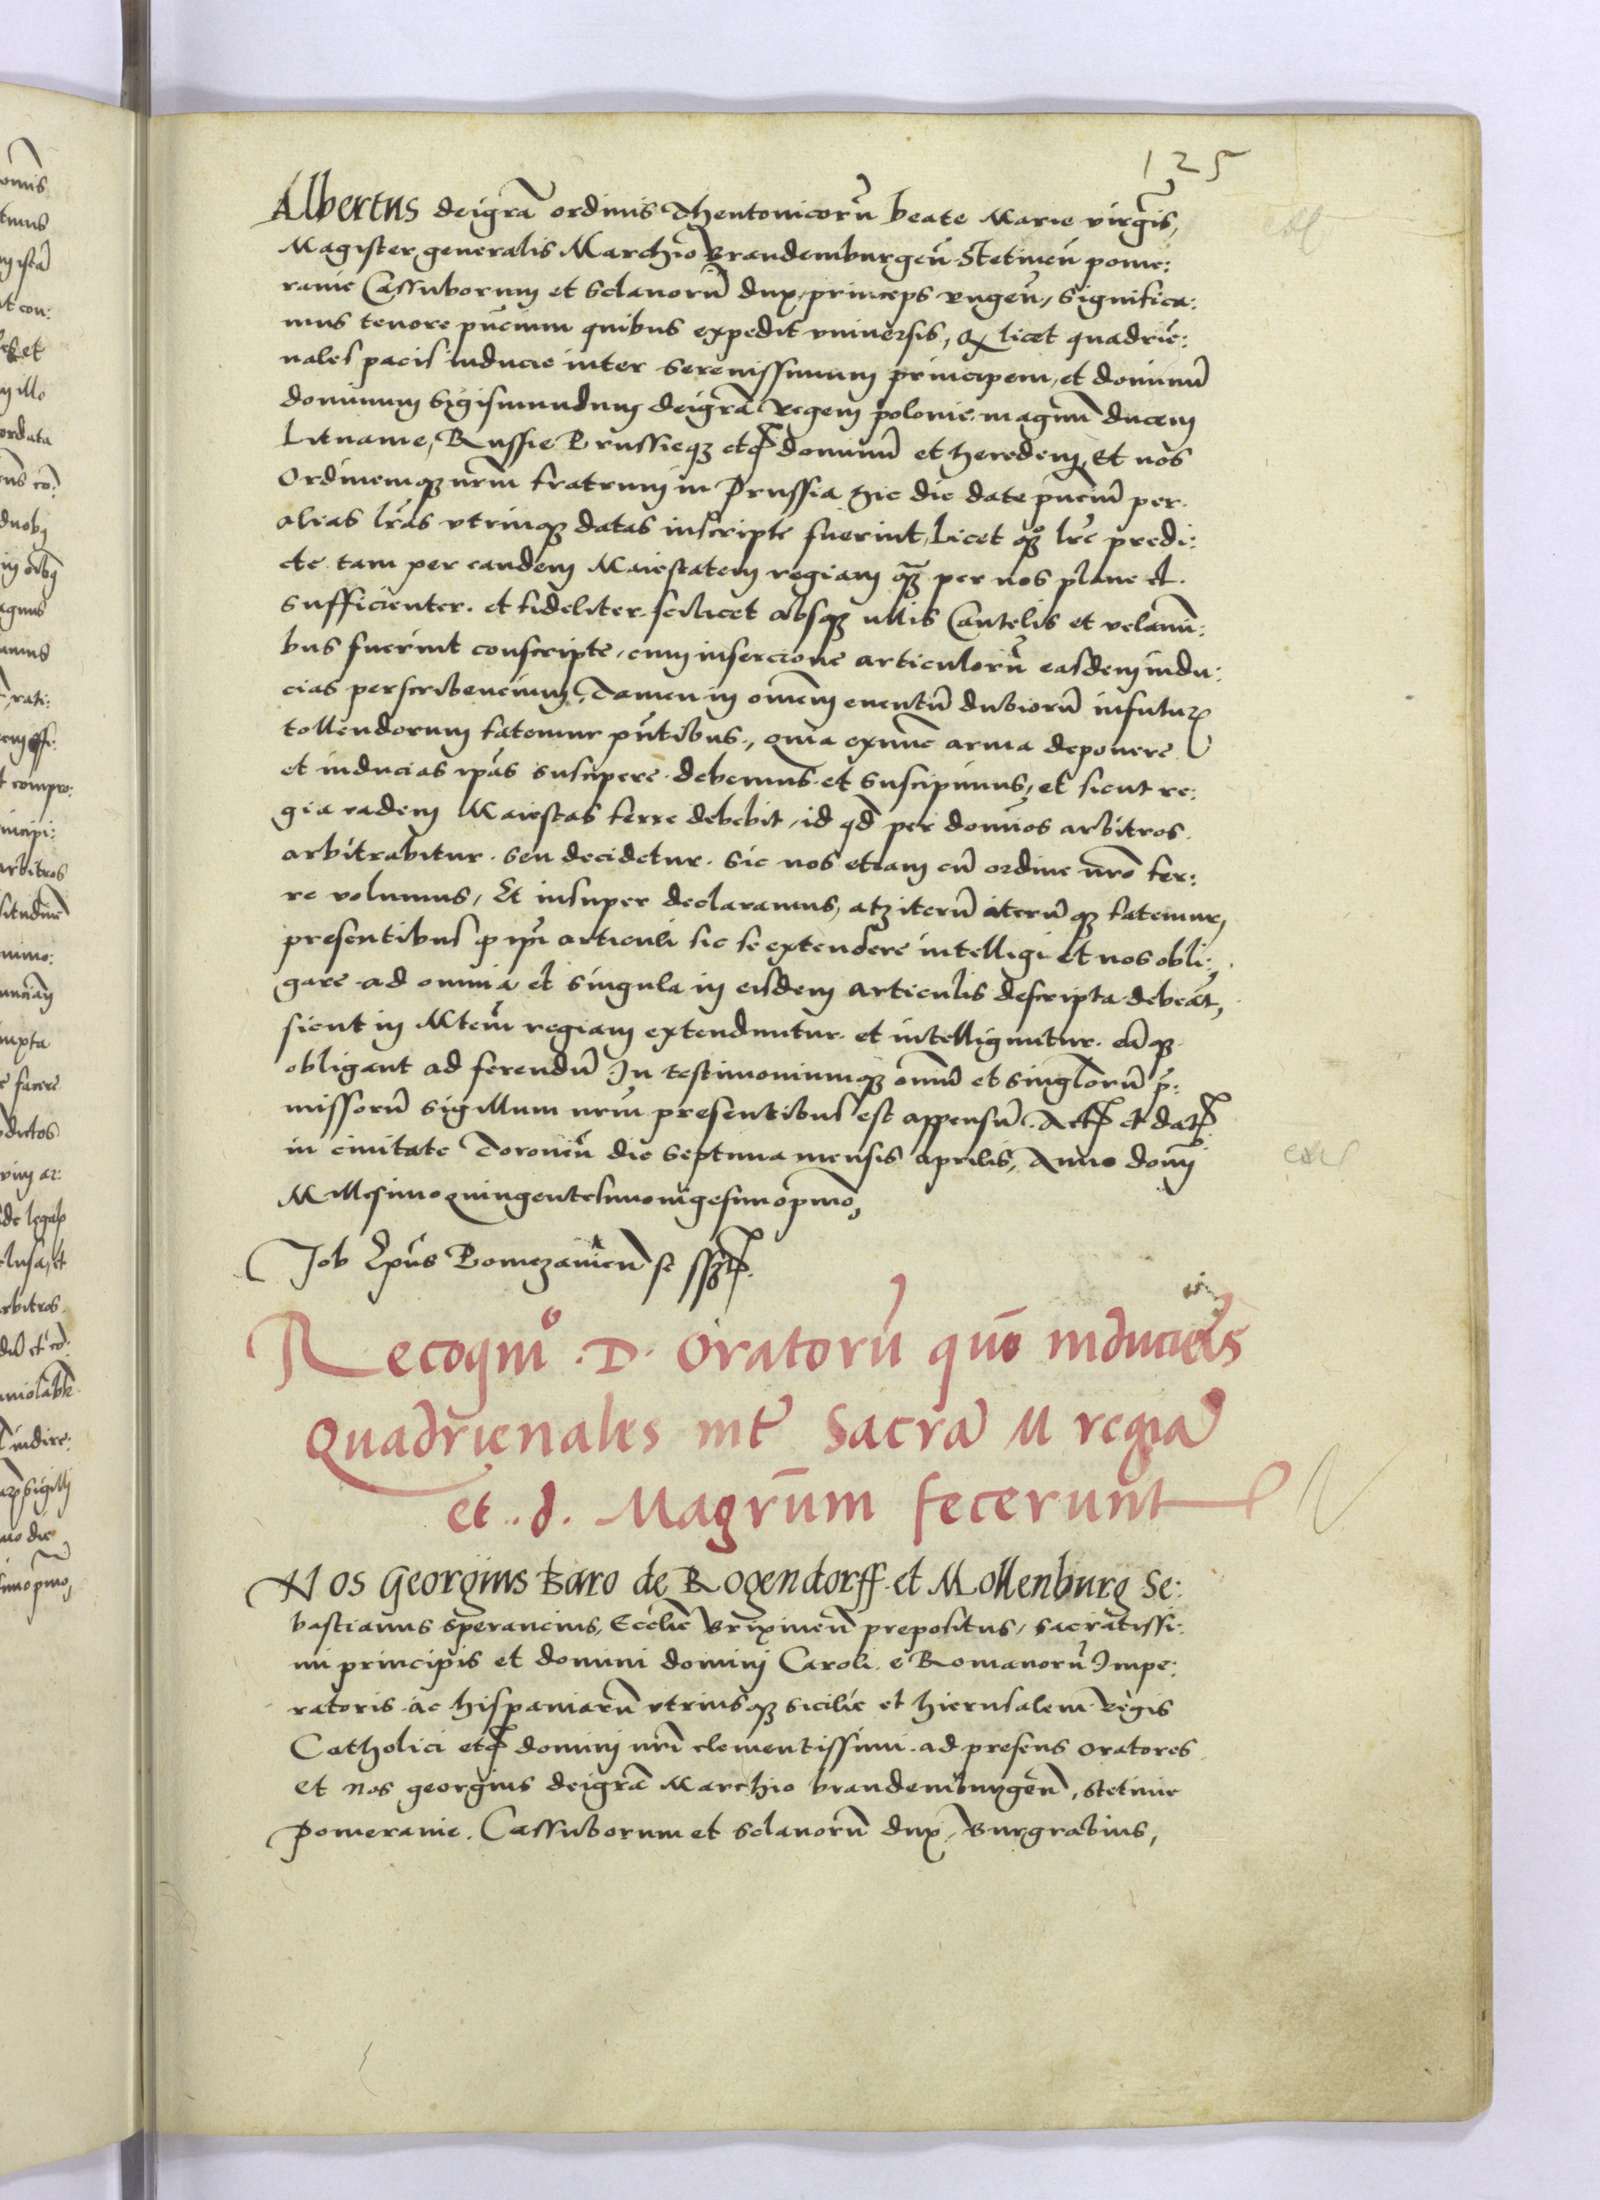 125
Albertus deigrã ordinis Theutonicorũ beate Marie virgĩs,
Magister generalis Marchio Brandemburgeñ Stetineñ pome:
ranie Cassuborum et Sclavorũ dux, princeps rugeñ, Significa:
mus tenore pñcium quibus expedit vniversis, Q licet quadriẽ:
nales pacis inducie inter Serenissimum principem, et dominũ
dominum Sigismundum deigrã Regem polonie magnũ ducem
Lituanie, Russie Prussieqꝫ etcꝭ dominũ et heredem, et nos
Ordinemqꝫ nrm̃ fratrum in Prussia hic die date pñciũ per
alias lrãs vtrinqꝫ datas inscripte fuerint, Licet qꝫ lrẽ predi:
cte tam per eandem Maiestatem regiam qꝫ̃ per nos plane et
sufficienter. et fideliter. scilicet absqꝫ ullis Cautelis et velamĩ:
bus fuerint conscripte, cum insercione articulorũ easdem indu:
cias perscribencium, Tamen in omẽm eventũ dubiorũ in futuꝝ
tollendorum fatemur pñtibus, quia exnunc arma deponere
et inducias ipãs suscipere debemus et suscipimus, et sicut re:
gia eadem Maiestas ferre debebit, id qd̃ per domĩos arbitros
arbitrabitur. seu decidetur. sic nos etiam cũ ordine nrõ fer:
re volumus, Et insuper declaramus, atqꝫ iterũ iterũqꝫ fatemur,
presentibus ꝙ ipĩ articuli sic se extendere intelligi et nos obli:
gare ad omnia et singula in eisdem articulis descripta debeãt,
sicut in Mtem̃ regiam extenduntur. et intelliguntur. eãqꝫ
obligant ad ferendũ In testimoniumqꝫ omiũ et singlorũ p̃:
missorũ sigillum nrũm presentibus est appensũ. Actꝭ et datꝭ
in civitate Toroneñ die septima mensis aprilis, Anno domĩ
Millesimoquingentesimovigesimoprimo,
Job Epũs Pomezanieñ se sszꝭ.
Recognitiõ .D. Oratorũ qui inducias
Quadriẽnales int̃ Sacrã M regiã
et .d. Magrũm fecerunt
Nos Georgius Baro de Rogendorff et Mollenburg Se:
bastianus Sperancius, Ecclĩe Brixineñ prepositus, sacratissi:
mi principis et domini domini Caroli .e Romanorũ Impe:
ratoris ac hispaniarũ vtriusqꝫ sicilie et hierusalem Regis
Catholici etcꝭ domini nrĩ clementissimi. ad presens oratores
et nos georgius deigrã Marchio brandemburgeñ, Stetinie
Pomeranie. Cassuborum et Sclavorũ dux, Burgrabius,